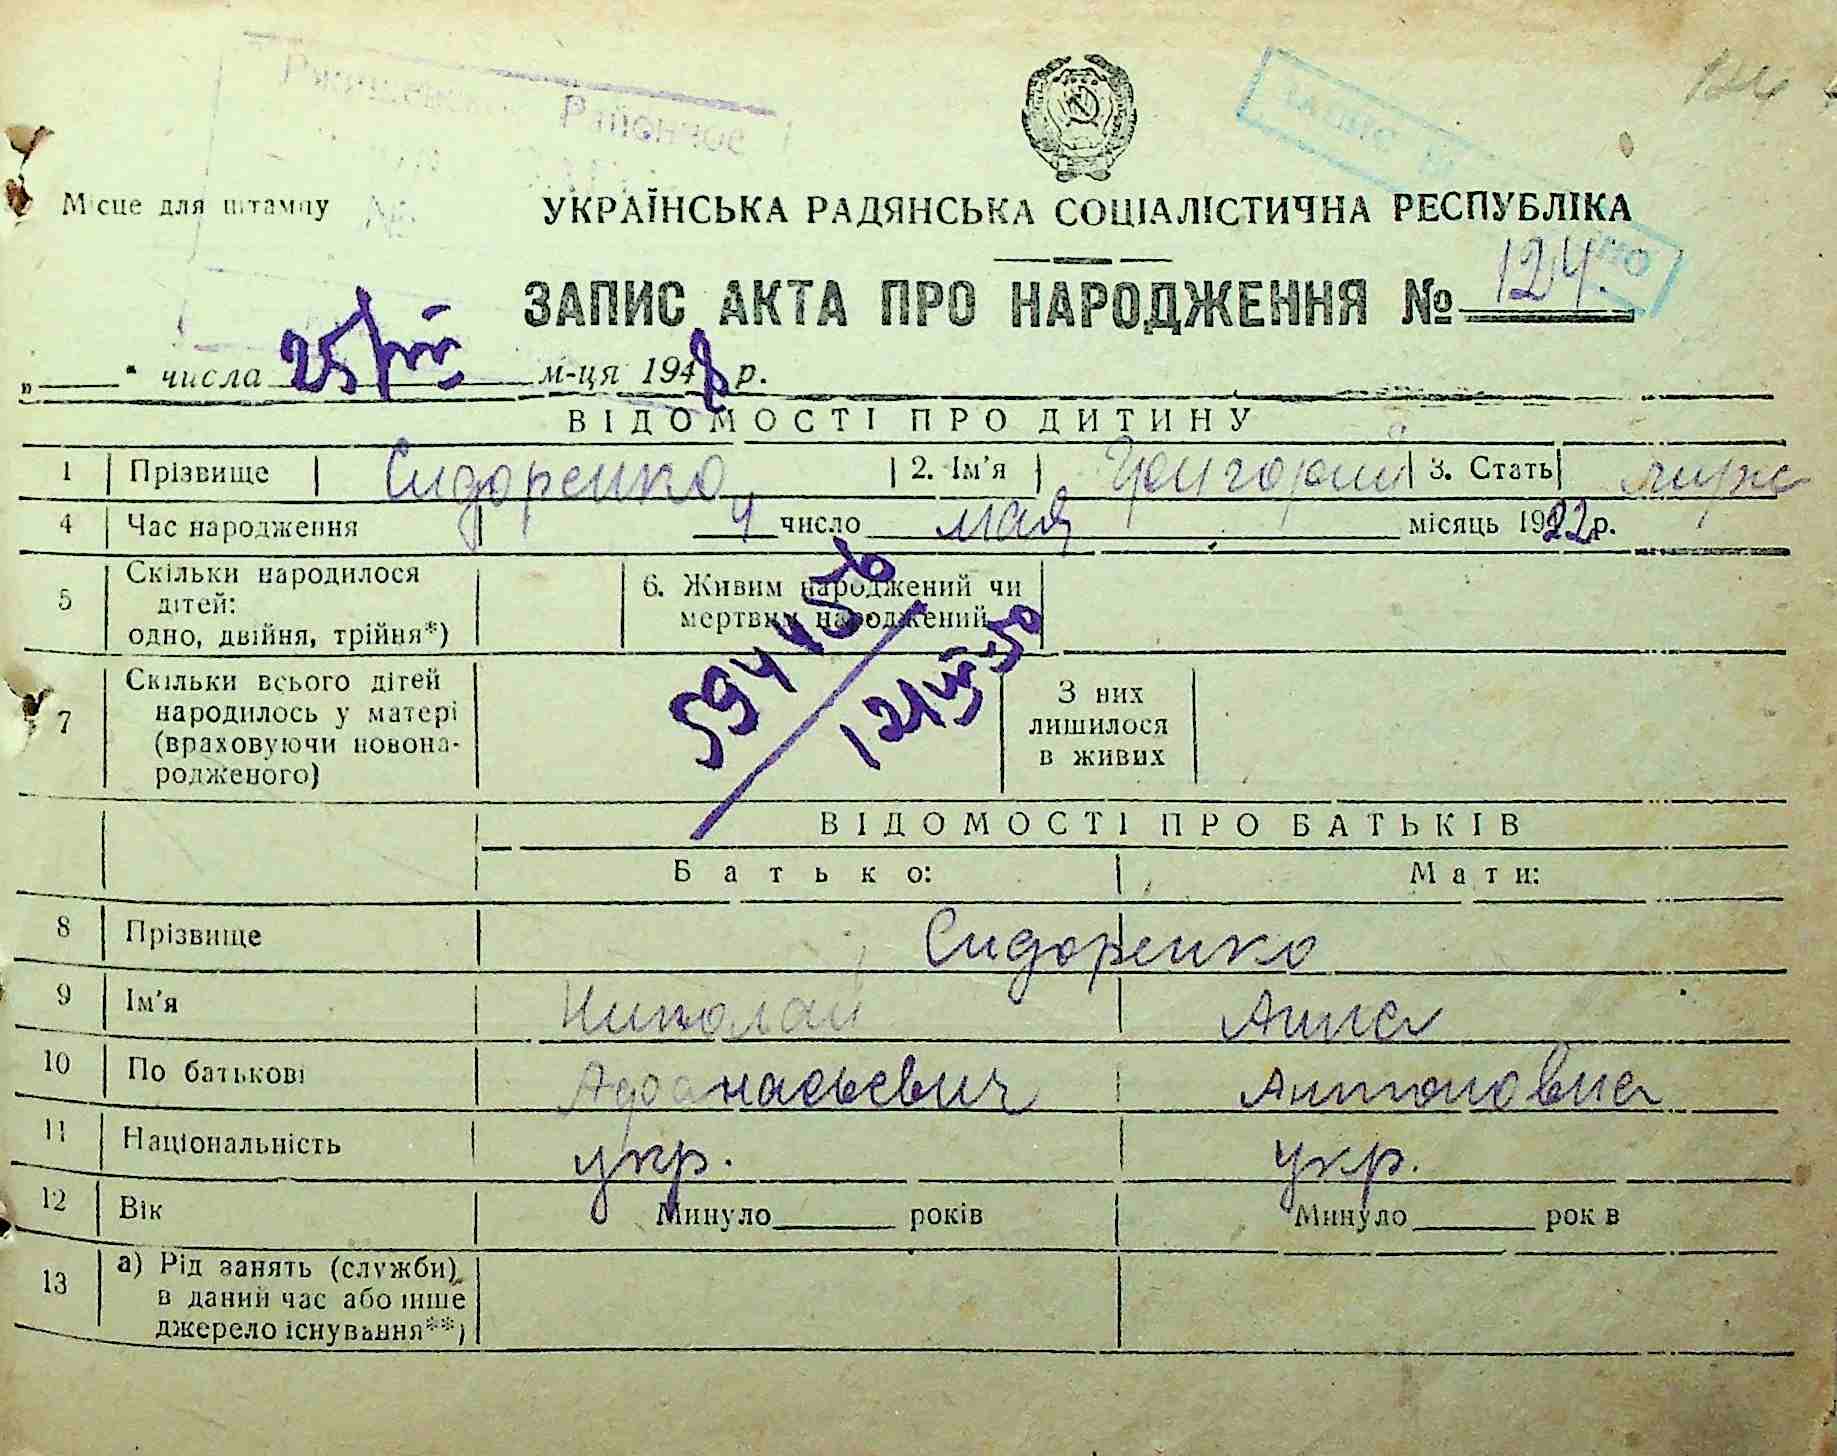 Районное
124
Місце для штампу №
УКРАЇНСЬКА РАДЯНСЬКА СОЦІАЛІСТИЧНА РЕСПУБЛІКА
ЗАПИС АКТА ПРО НАРОДЖЕННЯ № 124.
„ " числа 25/VIII м-ця 1948 р.
ВІДОМОСТІ ПРО ДИТИНУ
1 Прізвище Сидоренко 2. Ім'я Григорий 3. Стать муж
4 Час народження 4 число мая місяць 1922 р.
5 Скільки народилося дітей: одно, двійня, трійня*)
6. Живим народжений чи мертвим народжений
7 Скільки всього дітей народилось у матері (враховуючи новонародженого)
З них лишилося в живих
ВІДОМОСТІ ПРО БАТЬКІВ
Батько: Мати:
8 Прізвище Сидоренко
9 Ім'я Николай Анна
10 По батькові Афанасьевич Антоновна
11 Національність укр. укр.
12 Вік Минуло років Минуло років
13 а) Рід занять (служби) в даний час або інше джерело існування**)